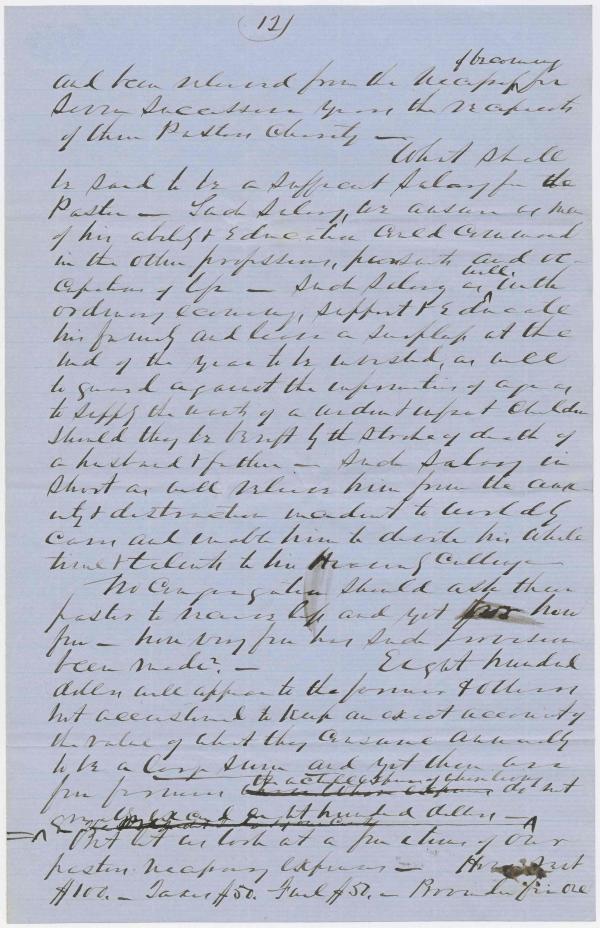 12
of becoming
and been relieved from the necessity for
seven successive years the recipients
of their Pastors Charity —
What shall
be said to be a sufficient Salary for the
Pastor — Such Salary, we answer as men
of his ability & Education could command
in the other professions, pursuits and oc-
cupations of life — Such Salary as will with
ordinary economy, support & Educate
his family and leave a surplus at the
end of the year to be invested, as well
to guard against the infirmities of age as
to supply the wants of a widow & infant Children
should they be bereft by the stroke of death of
a husband & father — Such Salary in
short as will relieve him from the anx-
iety & distraction incident to worldly
cares and enable him to devote his whole
time & talents to his Heavenly Calling
No Congregation should ask their
pastor to receive less and yet how
few — how very few has such provision
been made? — Eight hundred
dollars will appear to the farmer & others
not accustomed to keep an exact account of
the value of what they consume annually
to be a large sum and yet there are
few farmers the actual expense of whose living do not
exceed eight hundred dollars —
But let us look at a few items of our
pastors necessary expenses — House rent
$100. — Taxes $50. Fuel $50. — Provender for one